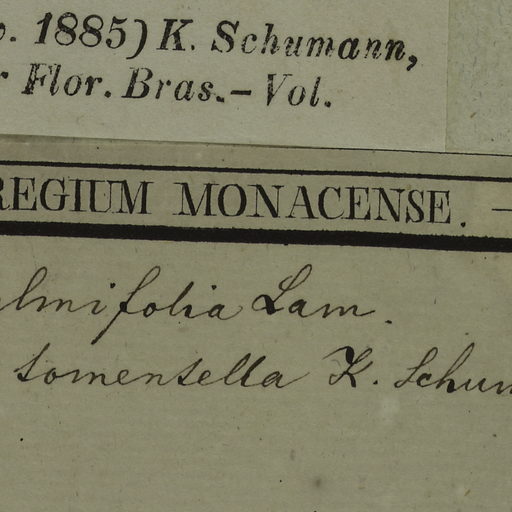 1885) K. Schumann,
Flor. Bras. – Vol.
REGIUM MONACENSE. –
ulmifolia Lam.
tomentella K. Schum